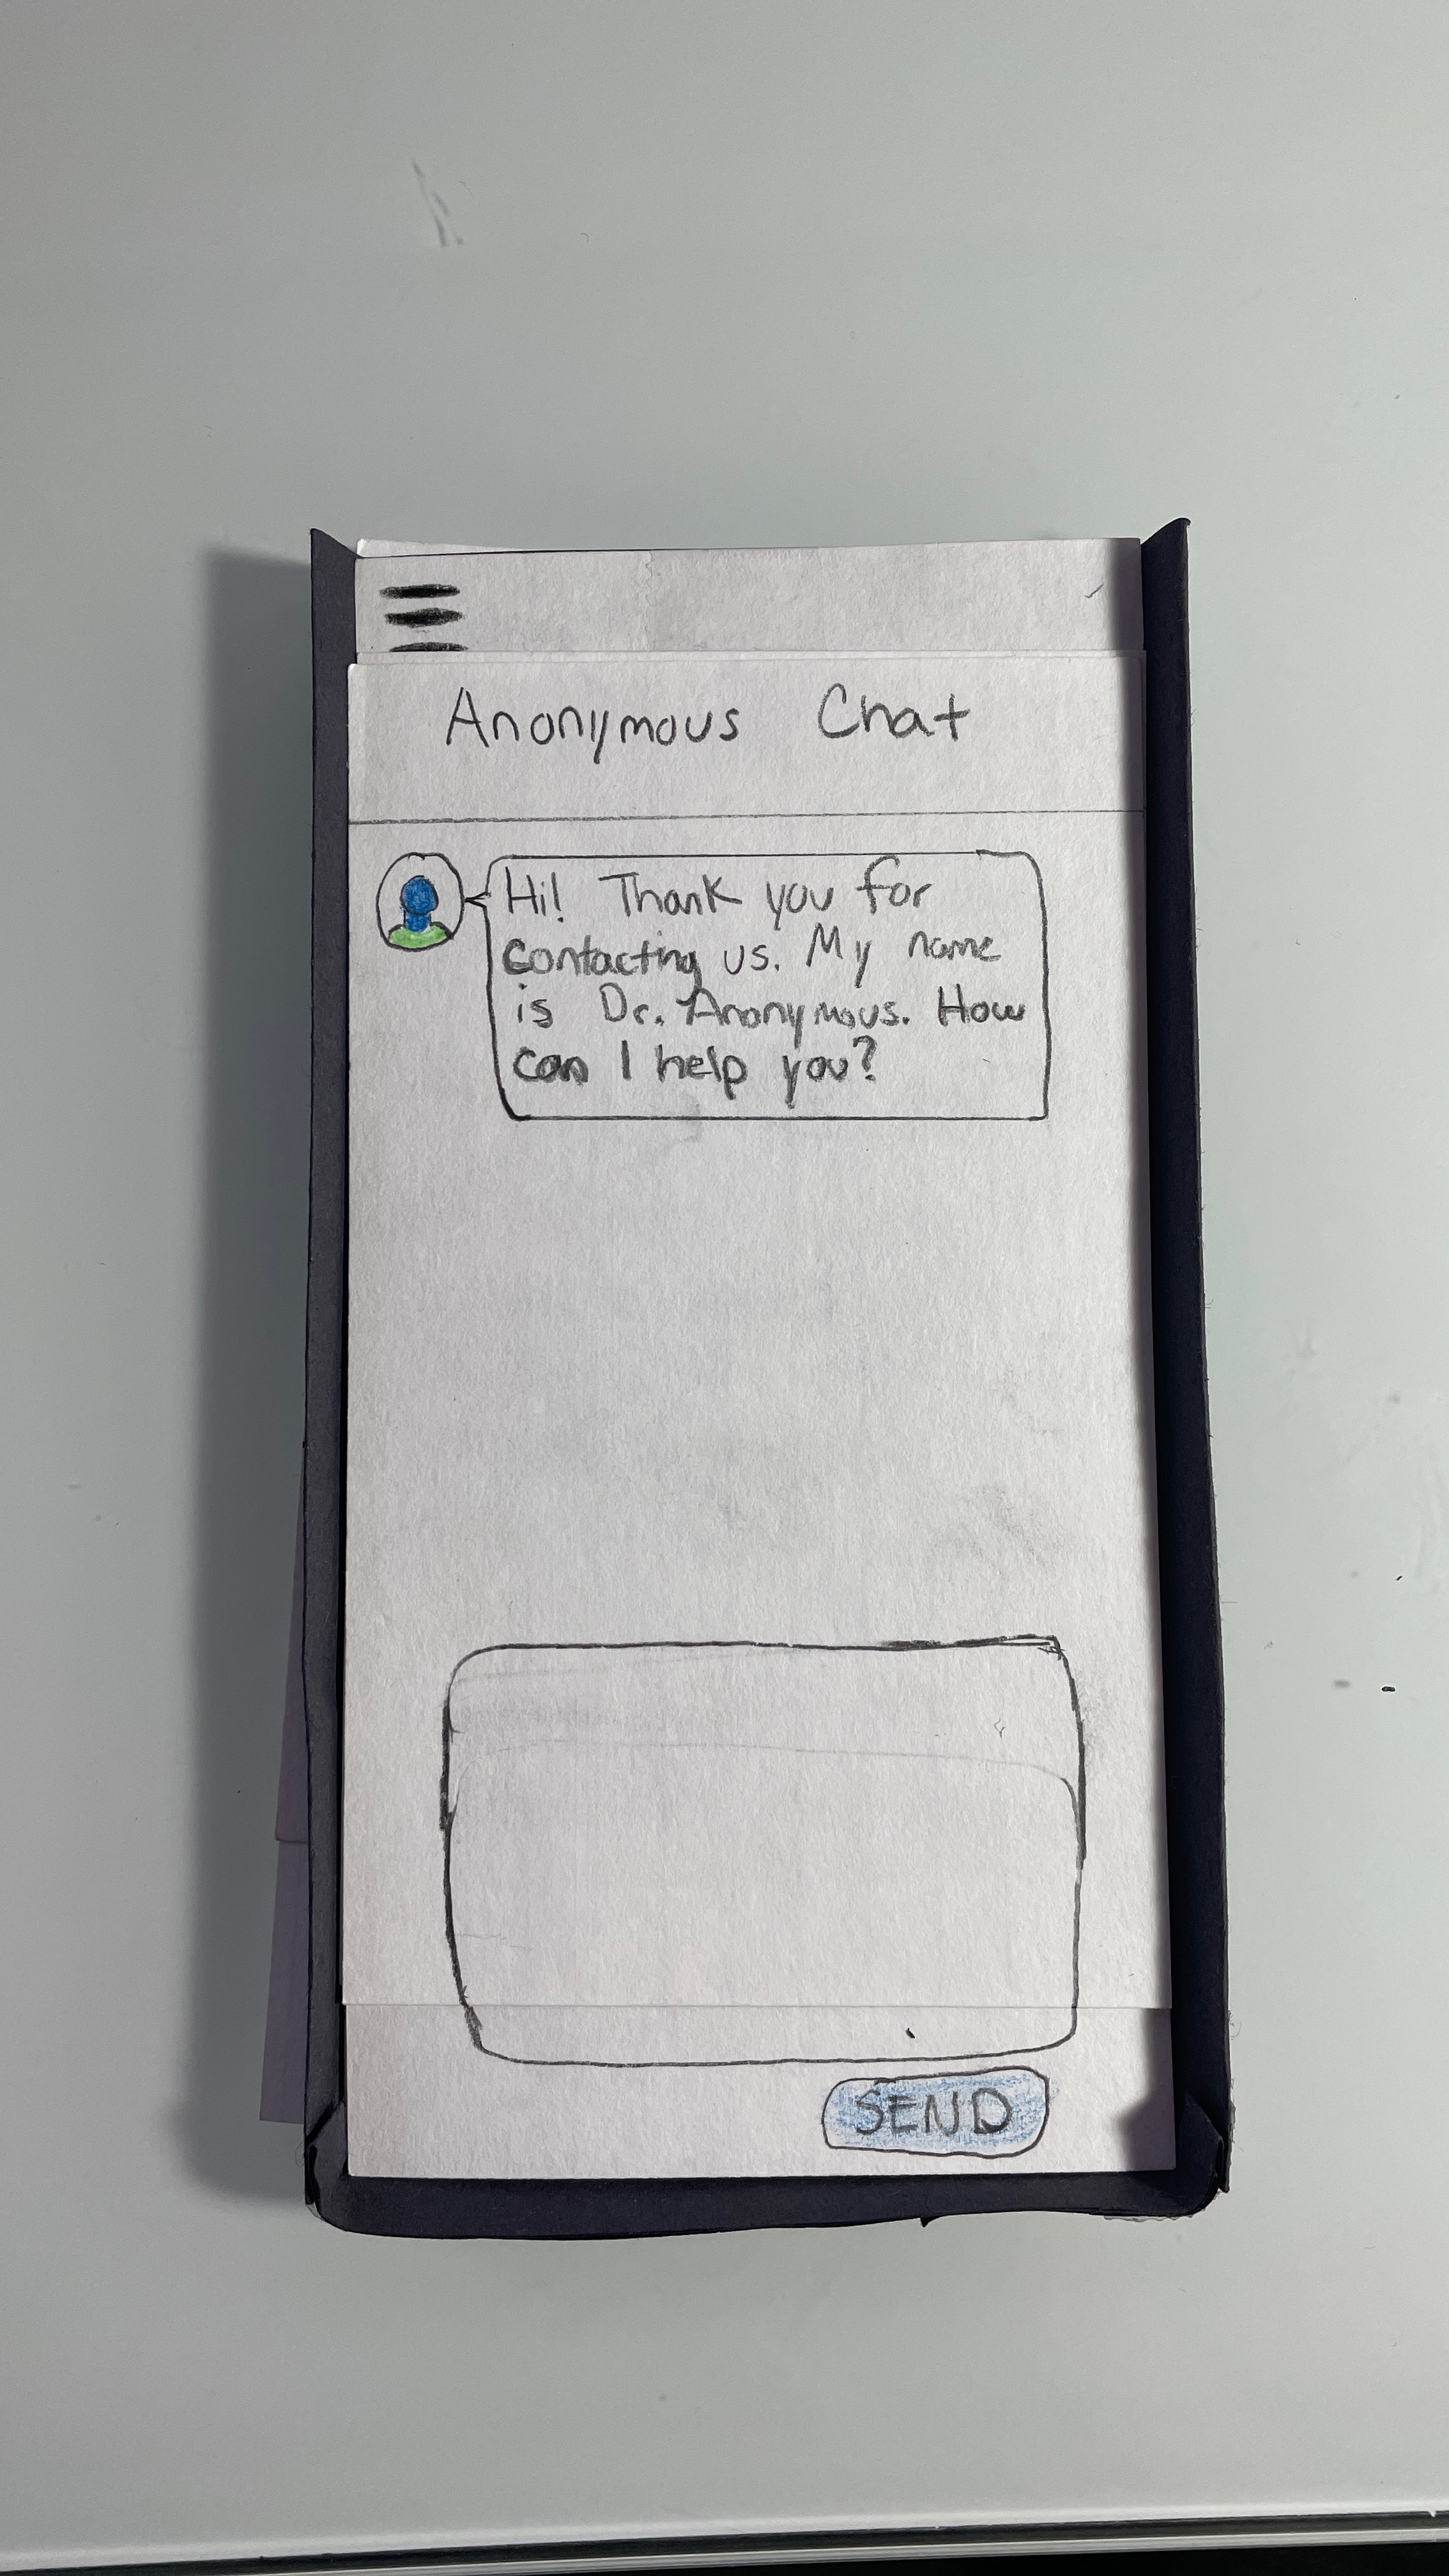 Anonymous Chat
Hi! Thank you for
contacting us. My name
is Dr. Anonymous. How
can I help you?
SEND